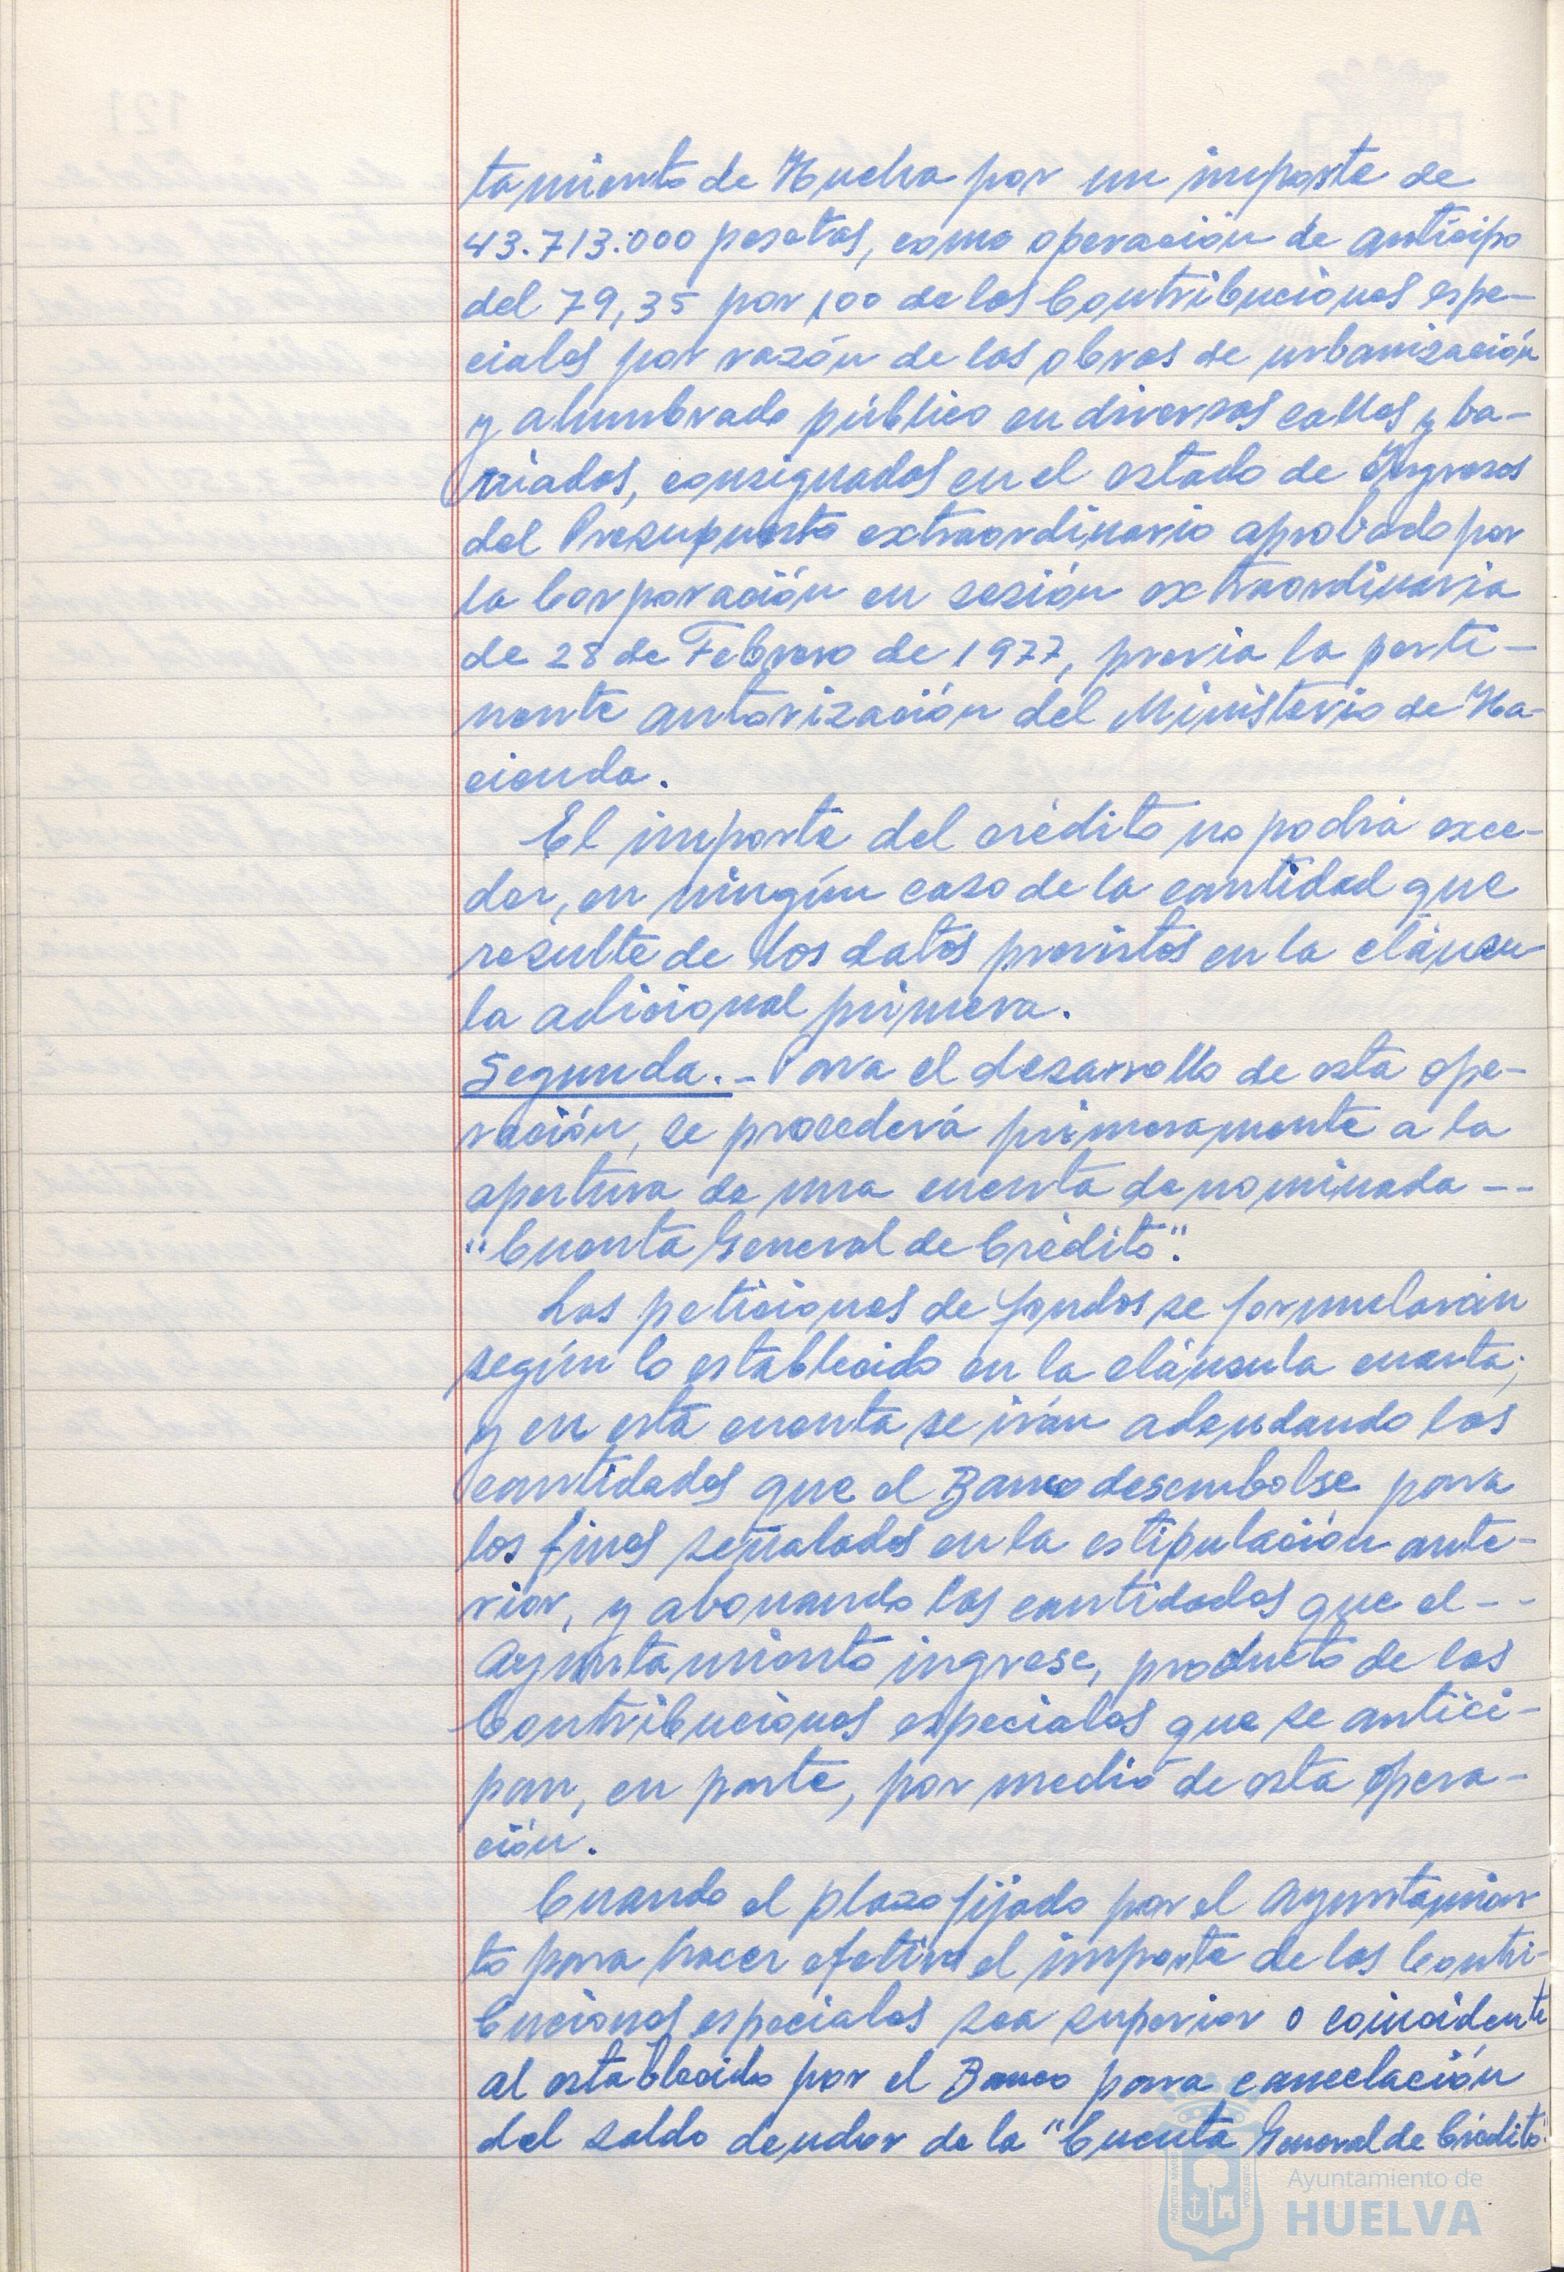 tamiento de Huelva por un importe de
43.713.000 pesetas, como operación de anticipo
del 79,35 por 100 de las Contribuciones espe-
ciales por razón de las obras de urbanización
y alumbrado público en diversas calles y ba-
rriadas, consignados en el estado de Ingresos
del Presupuesto extraordinario aprobado por
la Corporación en sesión extraordinaria
de 28 de Febrero de 1977, previa la perti-
nente autorización del Ministerio de Ha-
cienda.
El importe del crédito no podrá exce-
der, en ningún caso de la cantidad que
resulte de los datos previstos en la cláusu-
la adicional primera.
Segunda.- Para el desarrollo de esta ope-
ración, se procederá primeramente a la
apertura de una cuenta denominada --
"Cuenta General de Crédito".
Las peticiones de fondos se formularán
según lo establecido en la cláusula cuarta;
y en esta cuenta se irán adeudando las
cantidades que el Banco desembolse para
los fines señalados en la estipulación ante-
rior, y abonando las cantidades que el --
Ayuntamiento ingrese, producto de las
Contribuciones especiales que se antici-
pan, en parte, por medio de esta opera-
ción.
Cuando el plazo fijado por el Ayuntamien-
to para hacer efetivo el importe de las Contri-
buciones especiales sea superior o coincidente
al establecido por el Banco para cancelación
del saldo deudor de la "Cuenta General de Crédito"
Ayuntamiento de
HUELVA